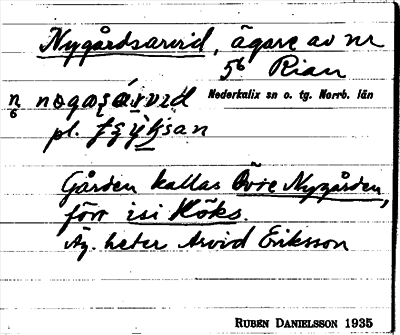 Nygårdsarvid, ägare av nr
5⁶ Rian
Nederkalix sn o. tg. Norrb. län
n
6
pl.
Gården kallas Övre Nygården,
förr isi Höks.
Äg. heter Arvid Eriksson
RUBEN DANIELSSON 1935